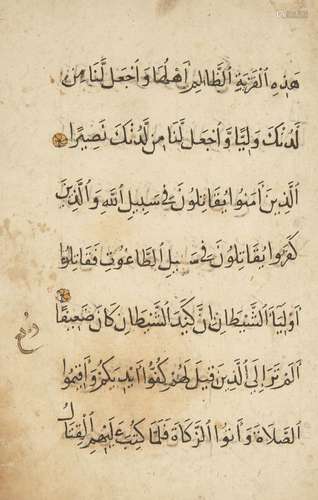 هَذِهِ الْقَرْيَةِ الظَّالِمِ اَهْلُهَا وَاجْعَل لَّنَا مِن
لَّدُنْكَ وَلِيًّا وَّاجْعَل لَّنَا مِن لَّدُنْكَ نَصِيرًا
الَّذِينَ اٰمَنُوا يُقَاتِلُونَ فِي سَبِيلِ اللّٰهِ وَالَّذِينَ
كَفَرُوا يُقَاتِلُونَ فِي سَبِيلِ الطَّاغُوتِ فَقَاتِلُوا
اَوْلِيَآءَ الشَّيْطَانِ اِنَّ كَيْدَ الشَّيْطَانِ كَانَ ضَعِيفًا
اَلَمْ تَرَ اِلَى الَّذِينَ قِيلَ لَهُمْ كُفُّوا اَيْدِيَكُمْ وَاَقِيمُوا
الصَّلَاةَ وَاٰتُوا الزَّكَاةَ فَلَمَّا كُتِبَ عَلَيْهِمُ الْقِتَالُ